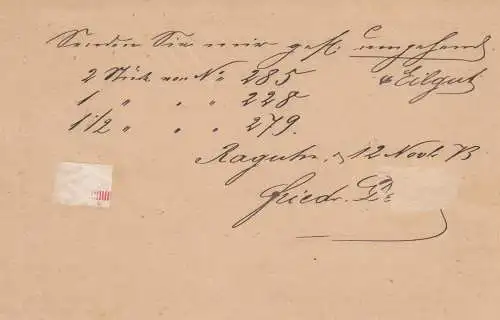 Senden Sie mir gefl. umgehend
2 Stück von No 285 p Eilgut
1 " " " 228
1 1/2 " " " 279.
Raguhn, d 12 Novb. 73
Friedr.